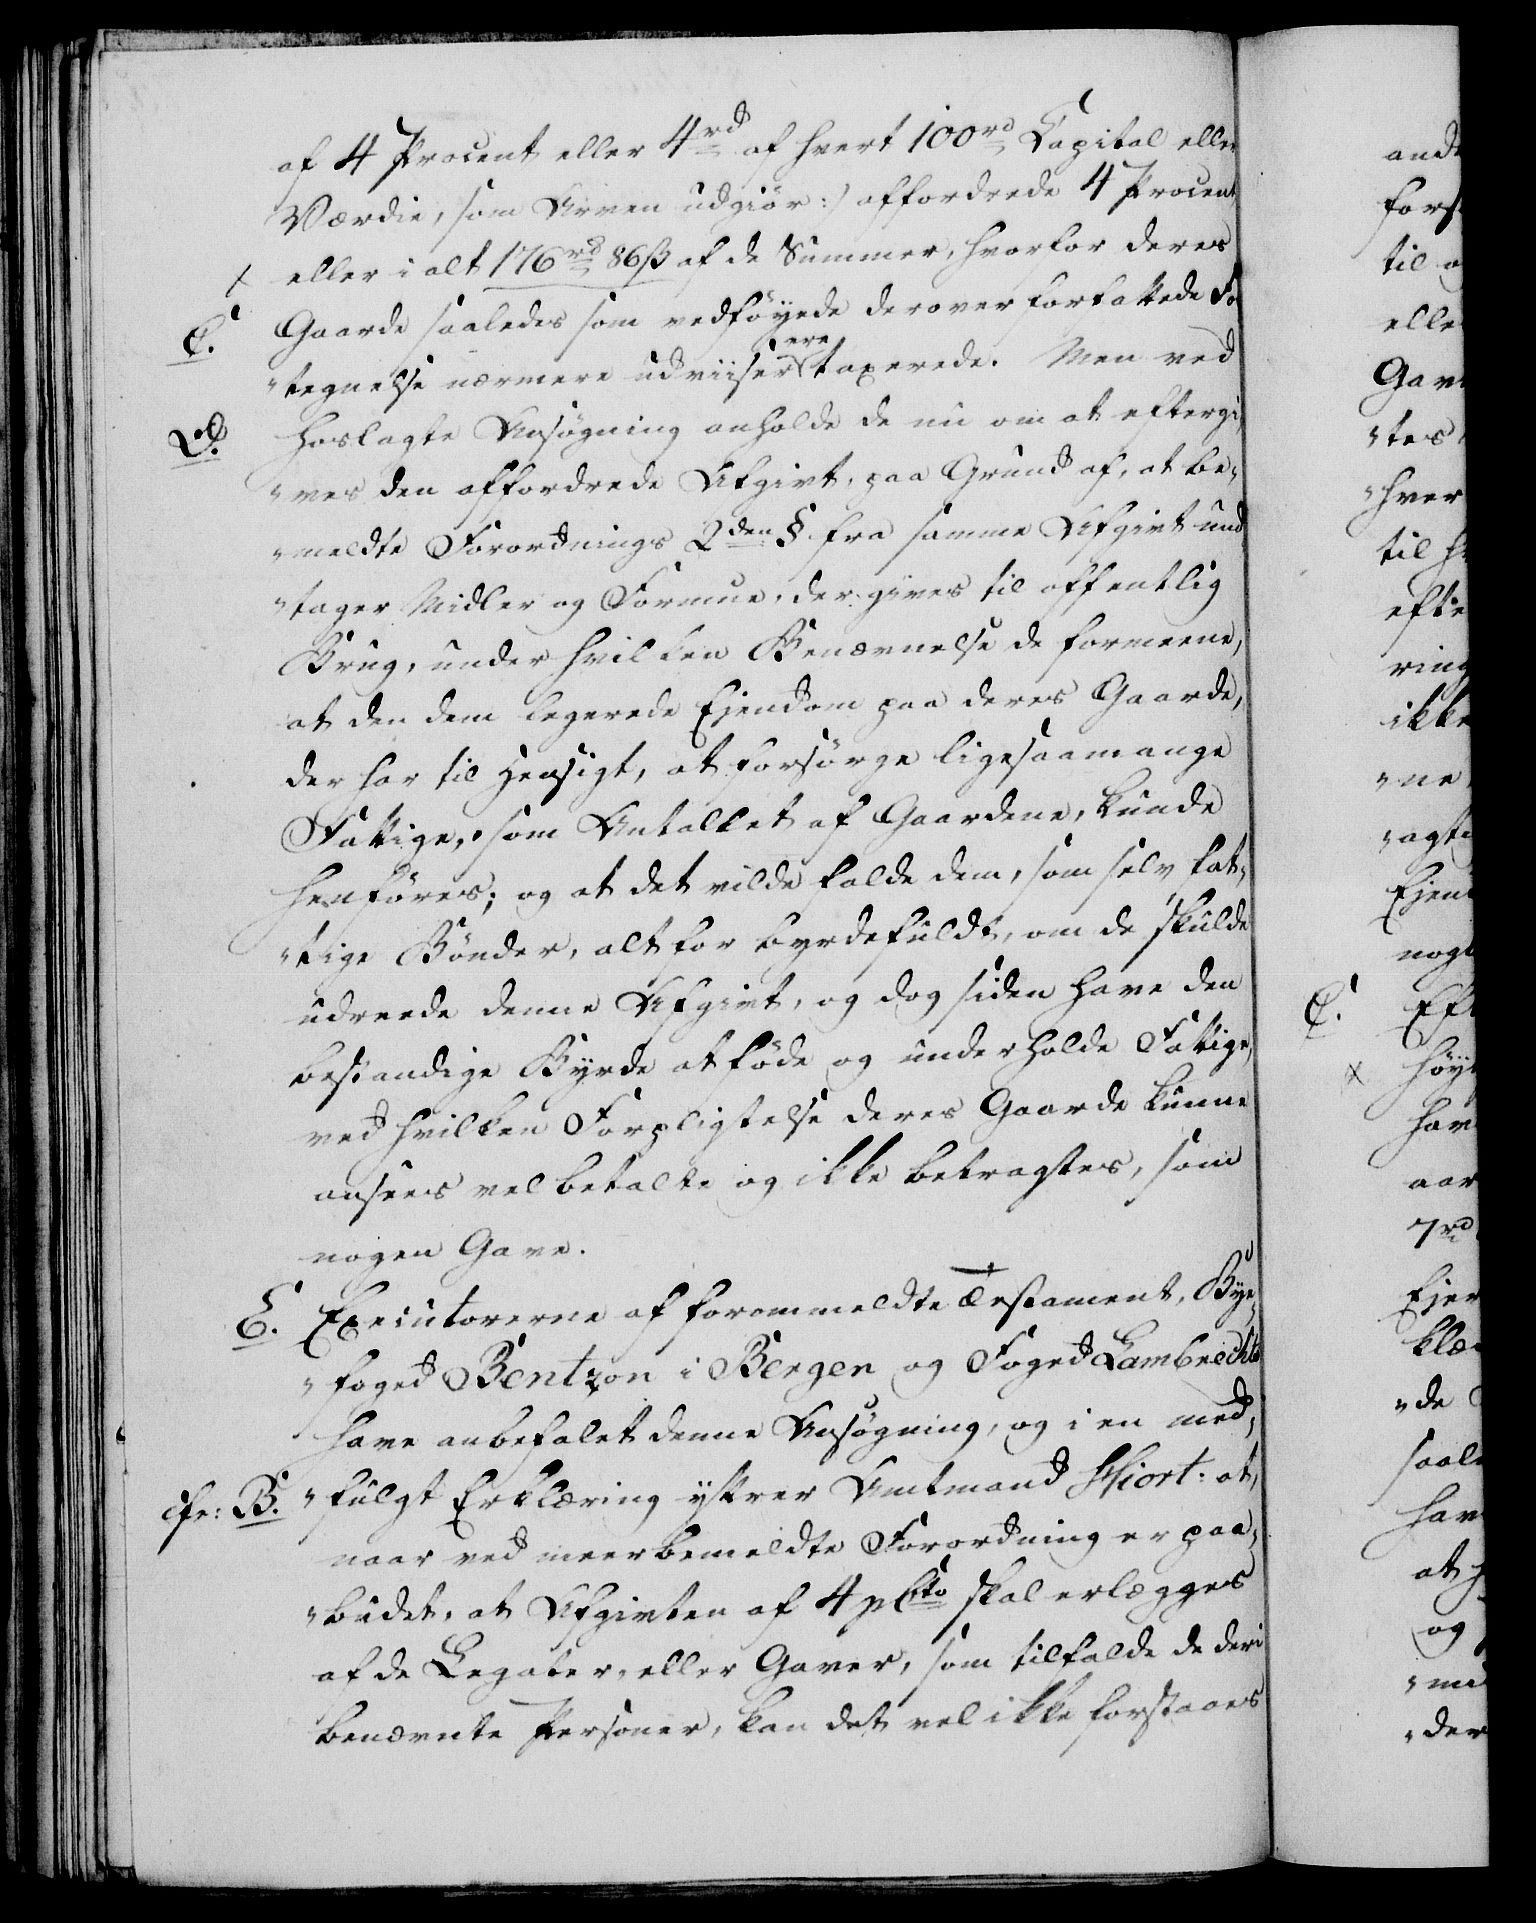 af 4 Procent eller 4 rd af hvert 100 rd Capital eller
Værdie, som Arven udgiør :/ affordrede 4 Procent
x eller i alt 176 rd 86 ß af de Summer, hvorfor deres
C. Gaarde saaledes som vedföyede derover forfattede Fo
„tegnelse nærmere udviiser ere taxerede. Men ved
D. hoslagte Ansøgning anholde de nu om at eftergi
„ves den affordrede Afgivt, paa Grund af, at be-
„meldte Forordnings 2den § fra samme Afgivt und
„tager Midler og Formue, der gives til offentlig
Brug, under hvilken Benævnelse de formeene,
at den dem legerede Ejendom paa deres Gaarde,
der har til Hensigt, at forsörge ligesaamange
Fattige, som Antallet af Gaardene, kunde
henföres; og at det vilde falde dem, som selv fat-
„tige Bönder, alt for byrdefuldt, om de skulde
udreede denne Afgivt, og dog siden have den
bestandige Byrde at föde og underholde Fattige,
ved hvilken Forpligtelse deres Gaarde kunne
ansees vel betalte og ikke betragtes, som
nogen Gave.
E. Executorerne af forommeldte Testament, Bye-
„foged Bentzon i Bergen og Foged Lambrechts
have anbefalet denne Ansøgning, og i en med-
cfr: B. „fulgt Erklæring yttrer Amtmand Hiort: at,
naar ved meerbemeldte Forordning er paa-
„budet, at Afgivten af 4 pCto skal erlægges
af de Legater, eller Gaver, som tilfalde de deri
benævnte Personer, kan det vel ikke forstaaes
ande
fors
til a
elle
Gav
„tes
„hver
til h
efte
ring
ikke
„ne
„agti
Ejen
noge
C. Eft
x höy
hav
aar
7 rd
Ejer
klæ
„de
saal
hav
at
og
„me
„der